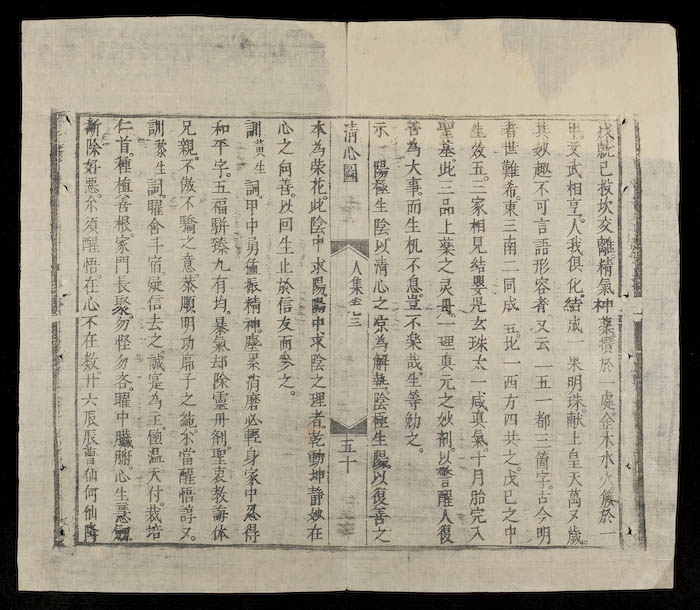 戊就己投坎交離精氣神藥攢於一處金木水火簇於一
中文武相亨人我俱化結成一果明珠献上皇天萬又歲
其妙趣不可言語形容者又云一五一都三箇字古今明
者世難希東三南二同成五北一西方四共之戊己之中
生数五三家相見結嬰児玄珠太一咸真氣十月胎完入
聖基此三品上葉之灵丹一理真元之妙剂以警醒人復
善為大事而生机不息豈不楽哉生等勉之
示 陽極生陰以清心之凉為解熱陰極生陽以復善之
清心圖 人集卷之三 五十
本為榮花此陰中求陽陽中求陰之理者乾動坤静妙在
心之向善以回生止於信友而參之
訓黃生詞甲中勇値振精神塵累消磨必輕身家中忍得
和平字五福駢臻九有均暴氣却除靈丹剤聖衷教誨体
兄親不傲不驕之意恭順明功席子之純尒當醒悟諄又
訓黎生詞曜會斗宿疑信去之誠寔為主値温天付栽培
仁首種植善根家門長聚勿怪勿吝曜中臟腑心生惡氣
新除好惡尒須醒悟在心不在教廿六辰辰曹仙何仙降